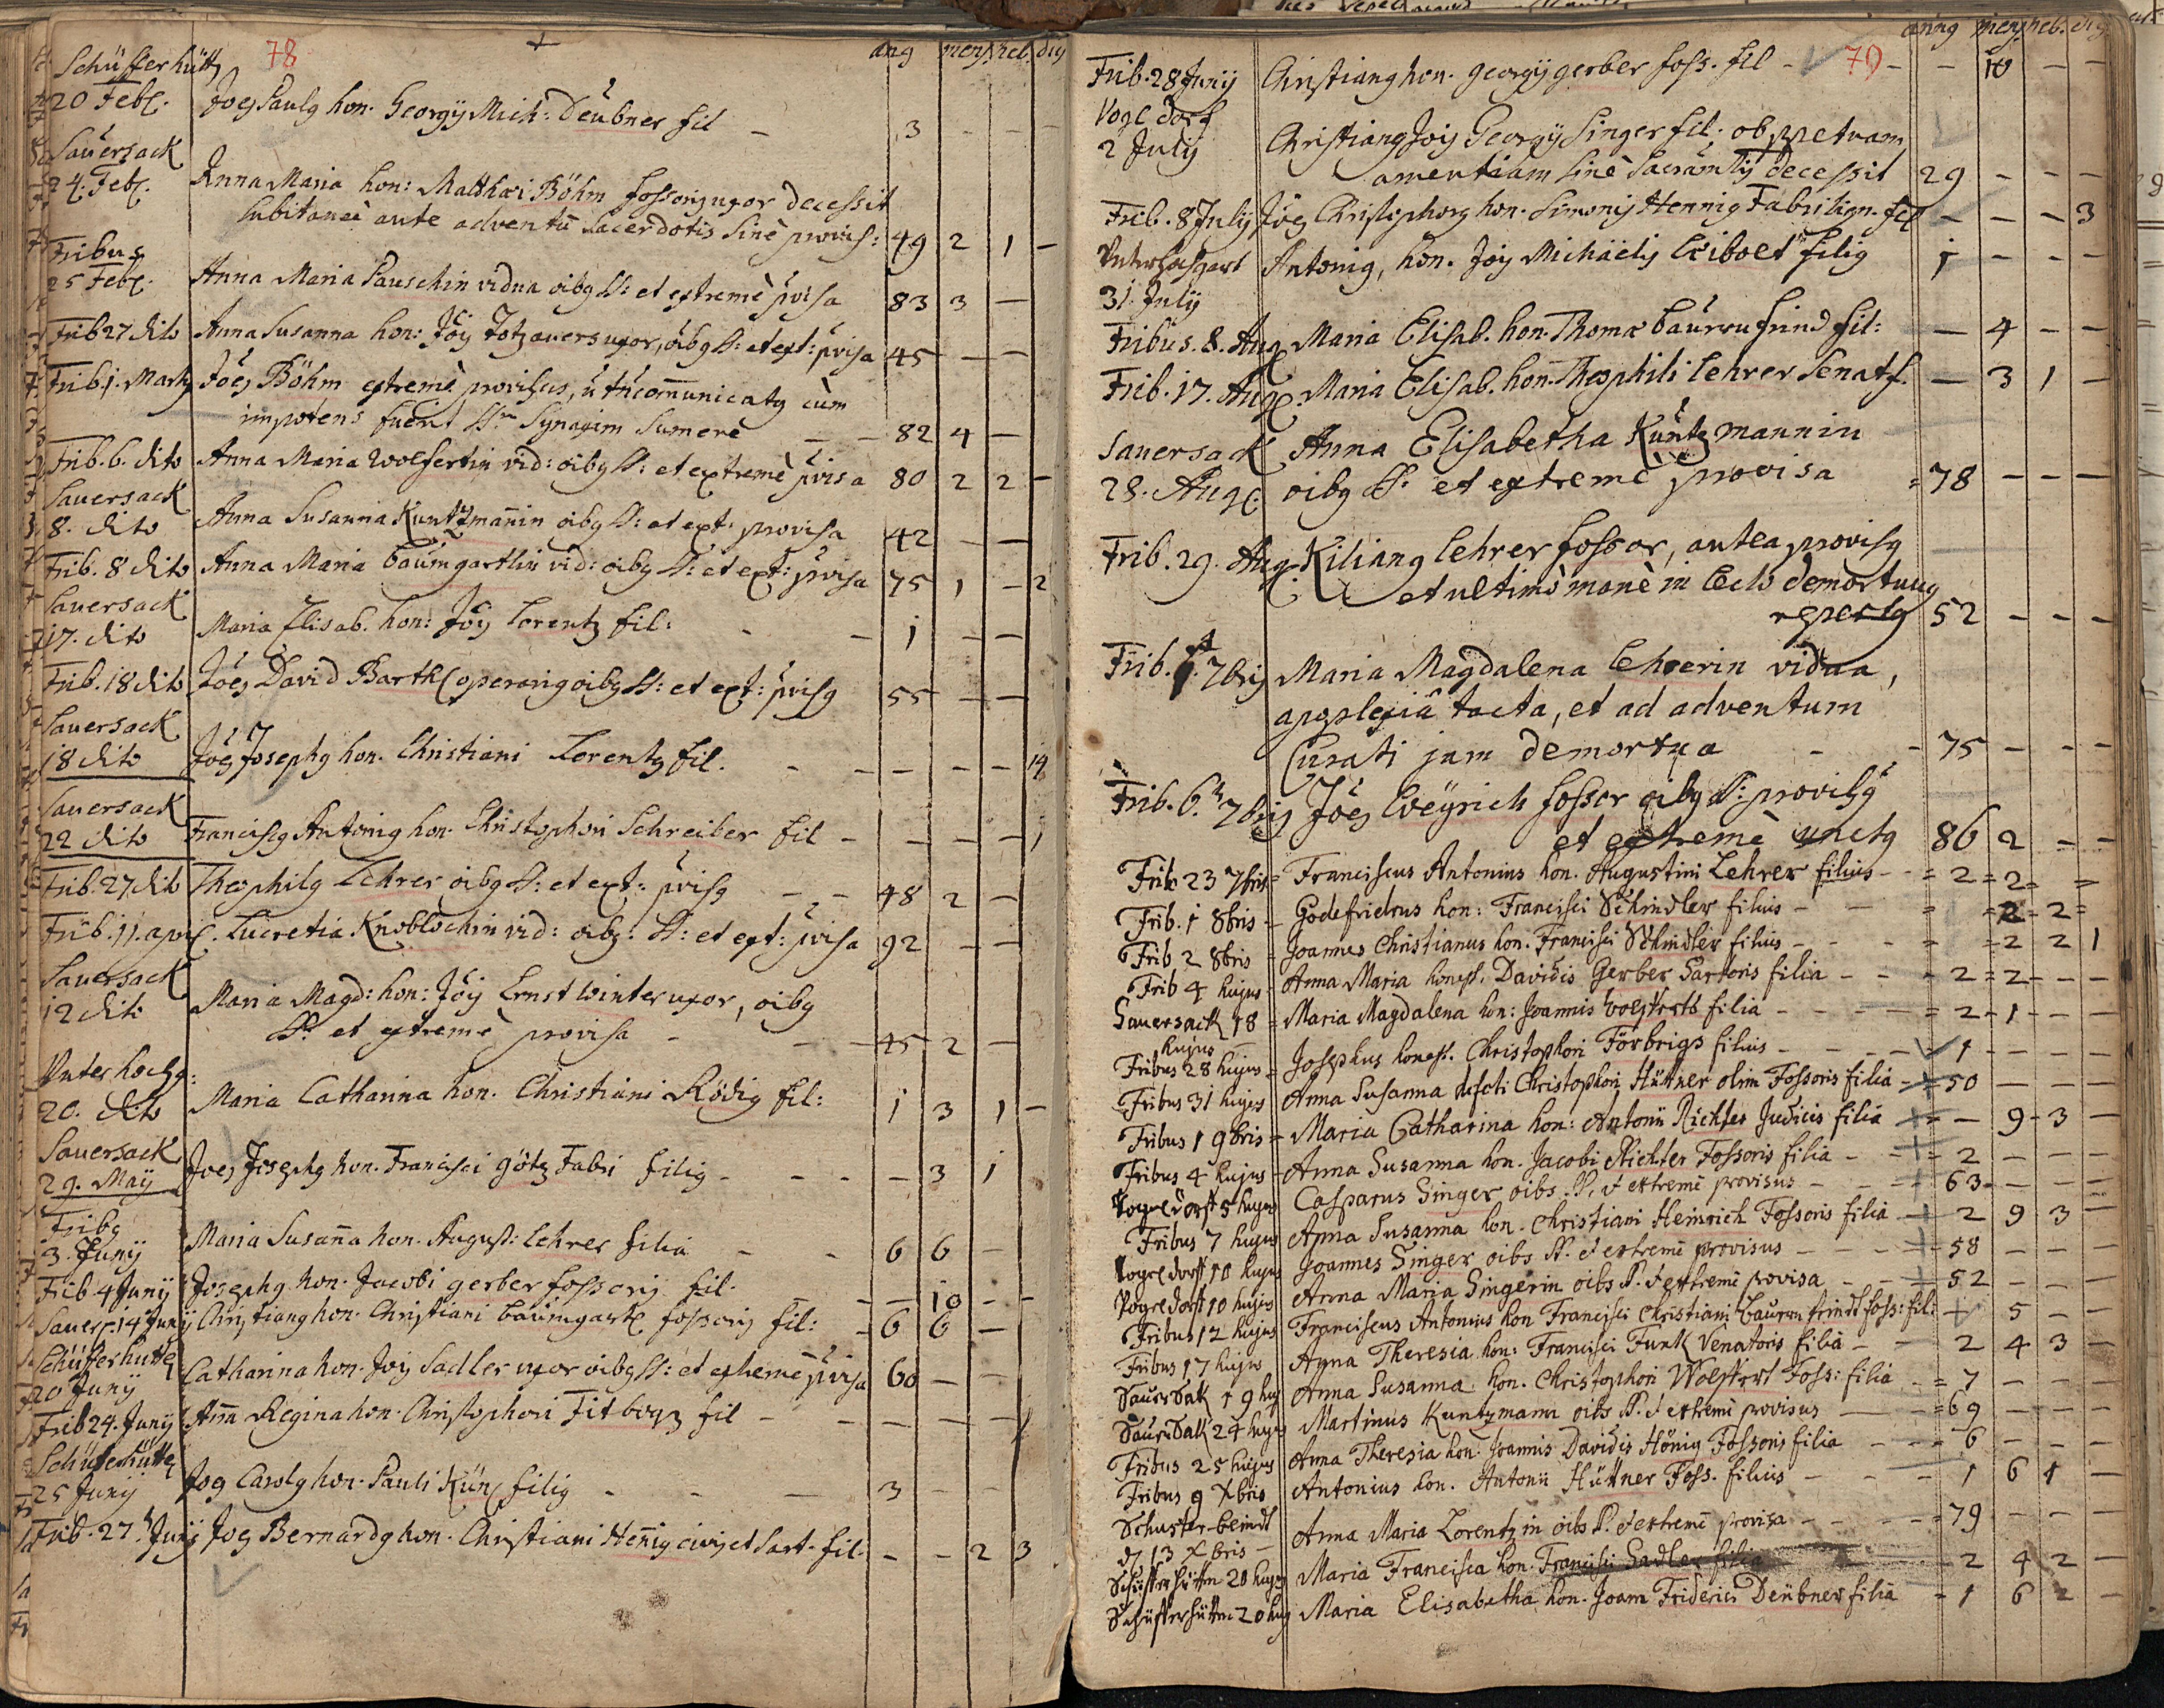 78 + ang mens heb. dig
Schüfferhütt
20 Feb. Joes Paulg hon. Georgÿ Mich: Deübner fil - 3 - - -
Sauersack
24. Feb. Anna Maria hon: Matthæi Böhm fossoris uxor decessit
subitaneè ante adventū Sacerdotis sinè provis: 49 2 1 -
Fribus
25 Feb. Anna Maria Pauschin vidua oibg S: et extremè pvisa 83 3 -
Frib 27 dito Anna Susanna hon: Joïs Totzauers uxor, oibg S: et ext: pvisa 45 - -
Frib. 1. Marty Joes Böhm extremè provisus, communicatg cùm
impotens fuerit Synaxim Sumere - - 82 4 -
Frib. 6. dito Anna Maria Wolfertin vid: oibg S: et extremè pvisa 80 2 2 -
Sauersack
8. dito Anna Susanna Kuntzmañin oibg S: et ext: provisa 42 - -
Frib. 8 dito Anna Maria Baumgartlin vid: oibg S: et ext: pvisa 75 1 - 2
Sauersack
17. dito Maria Elisab. hon: Joïs Lorentz fil: - - 1 - -
Frib. 18 dito Joes David Barthl operarig oibg S: et ext: pvisg 55 - -
Sauersack
18 dito Joes Josephg hon. Christiani Lorentz fil. - - - - - 14
Sauersack
22 dito Franciscg Antonig hon. Christophori Schreiber fil - - - - 1
Frib. 27 dito Theophilg Lehrer oibg S: et ext: pvisg - - 48 2 -
Frib. 11. apri. Lucretia Knoblochin vid: oibg: S: et ext: pvisa 92 - -
Sauersack
12 dito Maria Magd: hon: Joïs Ernst Winter uxor, oibg
S: et extremè provisa - - 45 2 -
Unter hochg:
20. dito Maria Catharina hon. Christiani Rödig fil: 1 3 1 -
Sauersack
29. Maÿ Joes Josephg hon. Francisci götz Fabri filig - - - - 3 1
Fribg
3. Junÿ Maria Susaña hon. August: Lehrer filia - - 6 6 -
Frib 4 Junÿ Josephg. hon. Jacobi gerber fossoris fil. - - 10 - -
Sauers. 14 Junÿ Christiang hon. Christiani Baumgartl fossoris fil: - 6 6 -
Schüfferhütte
20 Junÿ Catharina hon. Jois Sadler uxor oibg S: et extremè pvisa 60 - -
Frib 24. Junÿ Aña Regina hon. Christophori Titbogz fil - - - - 1
Schüferhütte
25 Junÿ Jog Carolg hon. Pauli Kün filig - - - 3 - -
Frib. 27. Junÿ Jog Bernardg hon. Christiani Heñig civis et Sart. fil. - - 2 3
anng mens heb. dig
79
Frib. 28 Junÿ Christiang hon. georgÿ gerber foss. fil - - - 10 - -
Vogldorf
2 July Christiang Jois Georgÿ Singer fil; ob ppetuam
amentiam sinè Sacramtis decessit 29 - - -
Frib. 8 July Joes Christophorg hon. Simonis Hennig Fabri lign. fil - - - 3
Unterhochgart Antonig, hon. Jois Michäelis Leibolt filig 1 - - -
31. July
Fribus. 8. Aug Maria Elisab. hon. Thomæ Baurnfrind fil: - 4 - -
Frib. 17. Aug. Maria Elisab. hon. Theophili Lehrer Senat. f. - 3 1 -
Sauersack Anna Elisabetha Kuntzmannin
28. Aug. oibg S. et extremè provisa = 78 - - -
Frib. 29. Aug. Kiliang Lehrer fossor, antea provisg
et ultimò manè in lecto demortuug
repertg 52 - - -
Frib. 7bris Maria Magdalena Lehrerin vidua,
apoplexiâ tacta, et ad adventum
Curati jam demortua - - 75 - - -
Frib. 6. 7bris Joes Weÿrich fossor oibg S: provisg
et extremè unctg 86 2 - -
Frib 23 7bris = Franciscus Antonius hon. Augustini Lehrer filius - - = 2 = 2 - =
Frib. 1 8bris - Godefridus hon: Francisci Schindler filius - - = = 2 - 2 =
Frib 2 8bris = Joannes Christianus hon. Francisci Schindler filius - - - = = 2 2 1
Frib 4 hujus - Anna Maria honest. Davidis Gerber Sartoris filia - - = 2 = 2 - - -
Sauersack 18 = Maria Magdalena hon: Joannis Wolffarts filia - - - - = 2 - 1 - - -
hujus
Fribus 28 hujus = Josephus honest. Christophori Förbrigs filius - - - - 1 - - -
Fribus 31 hujus Anna Susanna defcti Christophori Hüttner olim Fossoris filia - = 50 - - -
Fribus 1 9bris - Maria Catharina hon: Antonii Richter Judicis filia = - 9 - 3 -
Fribus 4 hujus - Anna Susanna hon. Jacobi Richter Fossoris filia - - = 2 - - -
Vogeldorff 5 hujus Casparus Singer oibs. S. et extremè provisus - - - 63 - - -
Fribus 7 hujus Anna Susanna hon. Christiani Heinrich Fossoris filia - 2 9 3 -
Vogeldorff 10 hujus Joannes Singer oibs S. et extremè provisus - - - - 58 - - -
Vogeldorff 10 hujus Anna Maria Singerin oibs S. et extremè provisa - - - 52 - - -
Fribus 12 hujus Franciscus Antonius hon Francisci Christiani Baurnfrindt foss: fil: - 5 - -
Fribus 17 hujus Anna Theresia hon: Francisci Funk Venatoris filia - - 2 4 3 -
SauerSak 19 huj Anna Susanna hon. Christophori Wolffert Foss: filia - = 7 - - -
SauerSak 24 hujus Martinus Kuntzmann oibs S. et extremè provisus - = 69 - - -
Fribus 25 hujus Anna Theresia hon. Joannis Davidis Hönig Fossoris filia - - - 6 - - -
Fribus 9 Xbris Antonius hon. Antonii Hüttner Foss. filius - - - 1 6 1 -
Schuster-beindt
d 13 Xbris - Anna Maria Lorentzin oibs S. et extremè provisa - - - = 79 - - -
Schüfferhütten 20 hujus Maria Francisca hon. Francisci Sadler filia - 2 4 2 -
Schüfferhütten 20 huj Maria Elisabetha hon. Joann Friderici Deübner filia - 1 6 2 -